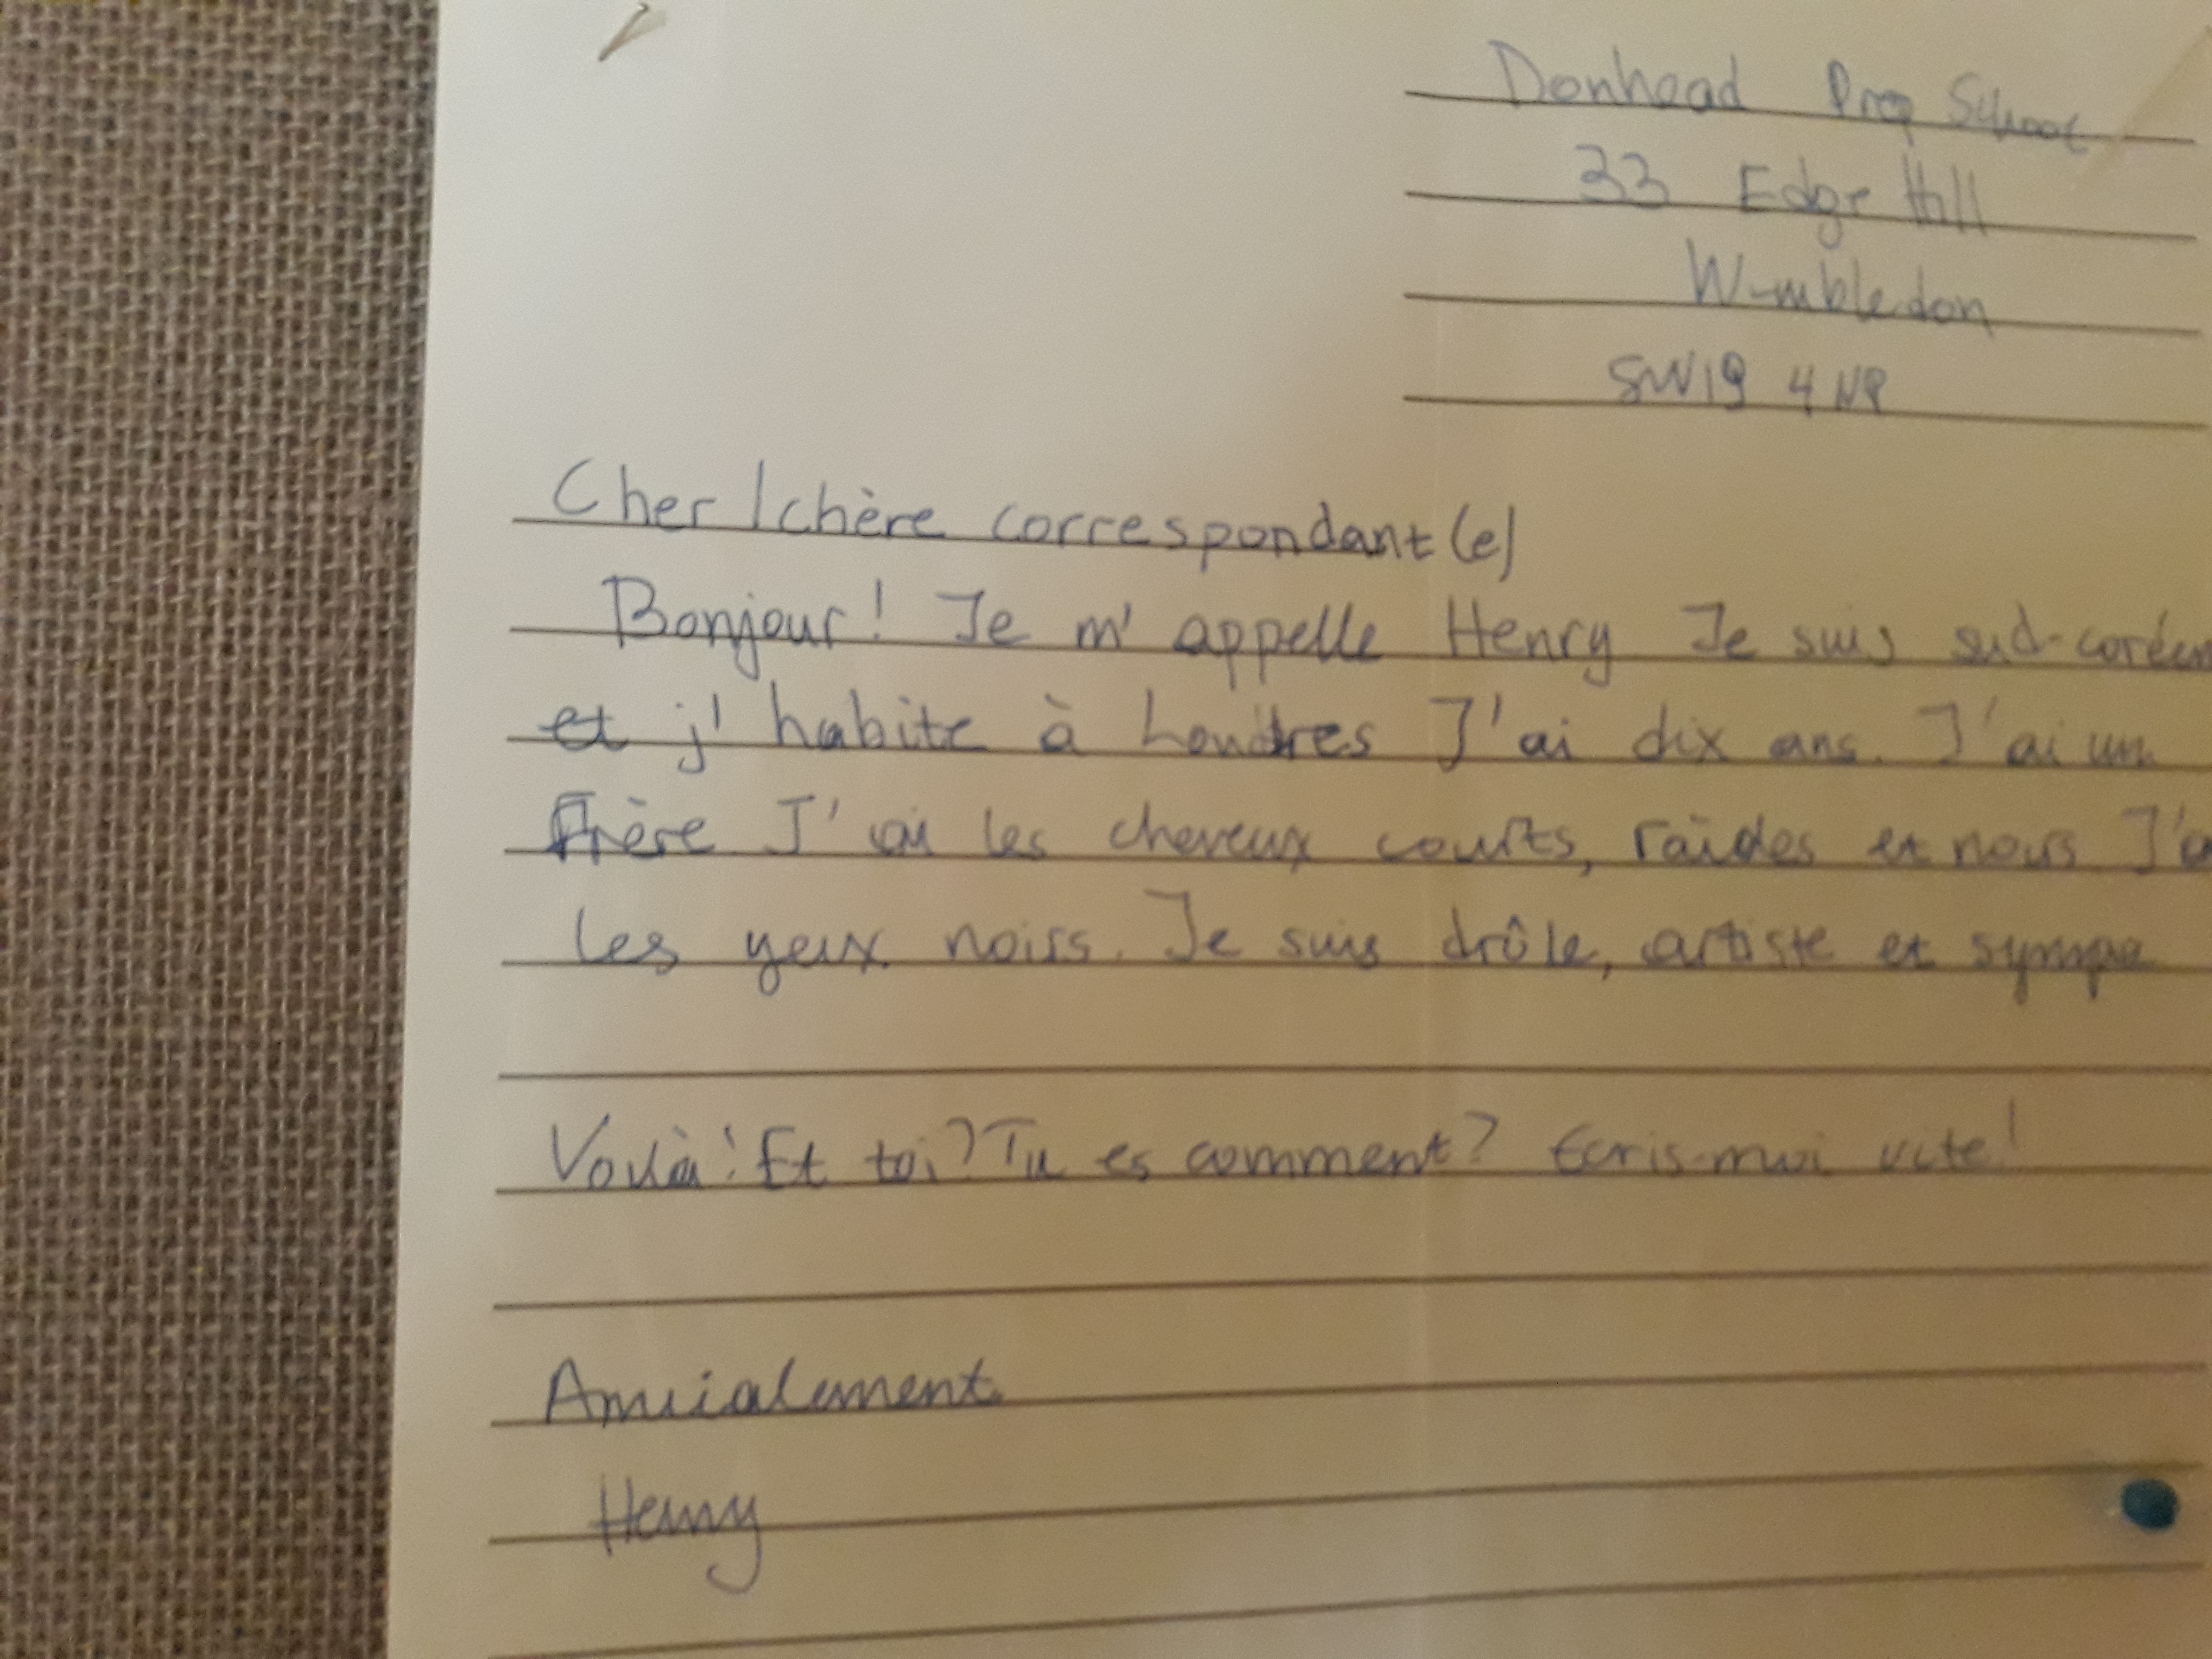 Donhead Prep School
33 Edge Hill
Wimbledon
SW19 4NP
Cher/chère correspondant(e)
Bonjour! Je m'appelle Henry Je suis sud-coréen
et j'habite à Londres J'ai dix ans. J'ai un
Frère J'ai les cheveux courts, raides et noirs J'a
les yeux noirs. Je suis drôle, artiste et sympa
Voilà! Et toi? Tu es comment? Ecris-moi vite!
Amicalement
Henry